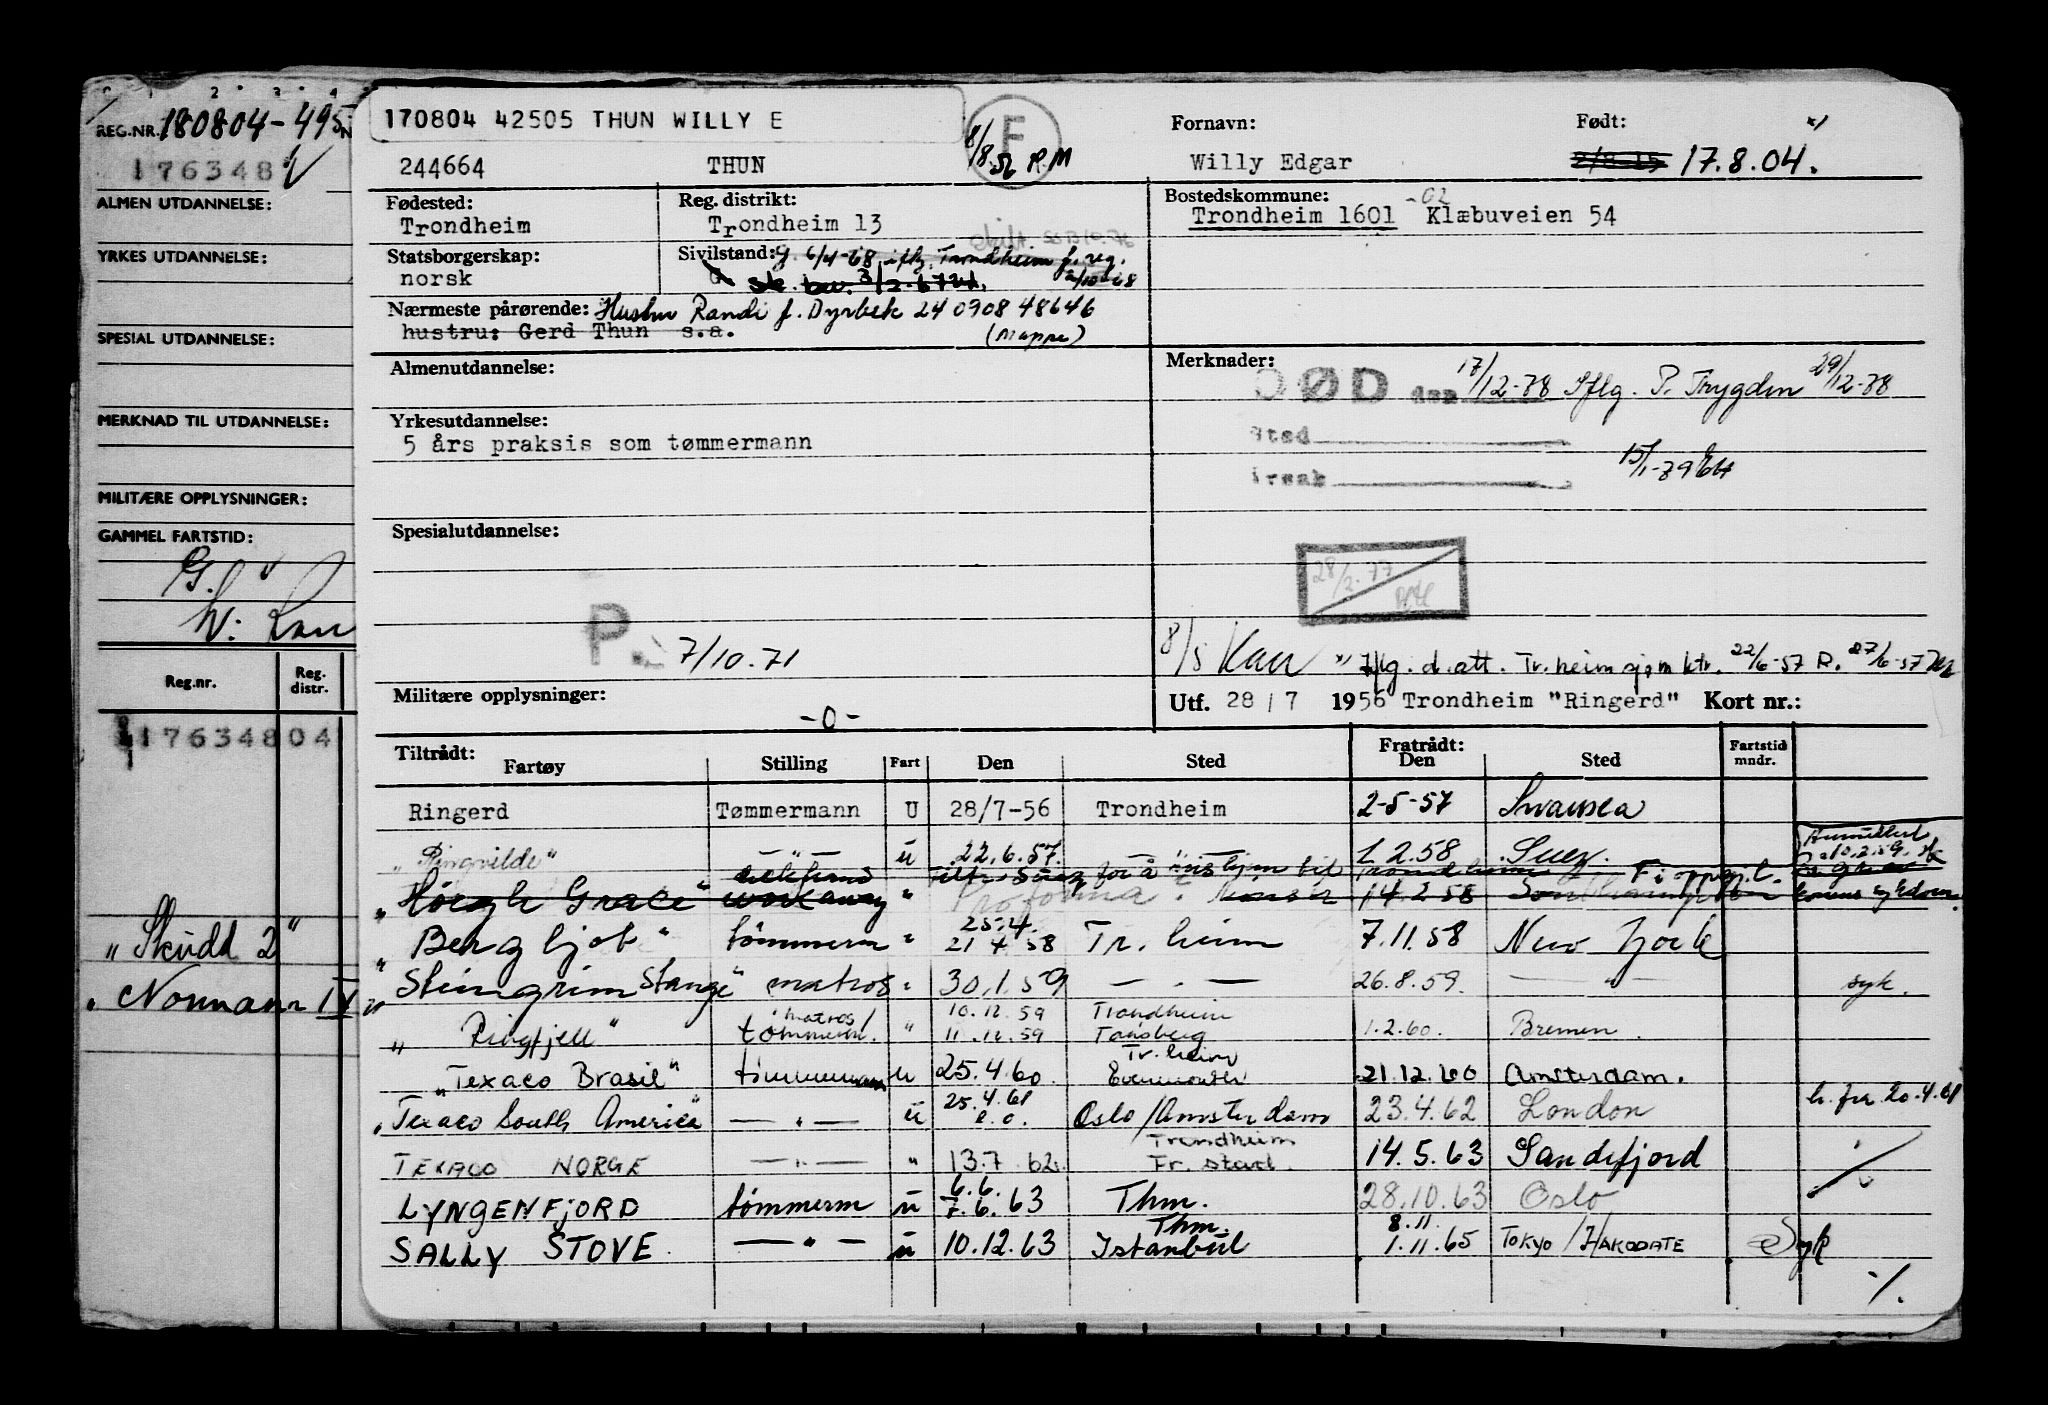 0 1 2 3 4
REG.NR. 180804-495
176348
ALMEN UTDANNELSE:
YRKES UTDANNELSE:
SPESIAL UTDANNELSE:
MERKNAD TIL UTDANNELSE:
MILITÆRE OPPLYSNINGER:
GAMMEL FARTSTID:
Reg.nr. Reg. distr.
17634804
"Skudd 2"
"Normann IV"
170804 42505 THUN WILLY E
F
8/8.56 R.M
244664 THUN
Fornavn:
Willy Edgar
Født:
17.8.04.
Fødested:
Trondheim
Reg. distrikt:
Trondheim 13
Bostedskommune:
-02
Trondheim 1601 Klæbuveien 54
Statsborgerskap:
norsk
Sivilstand: G. 6/4-68 iflg. Trondheim f.reg.
2/10-68
Nærmeste pårørende: Hustru Randi f. Dyrbek 240908 48646
hustru: Gerd Thun s.a. (Mappe)
Almenutdannelse:
Merknader:
DØD den 17/12-78 Iflg. P. Trygden 29/12-78
Sted
Årsak
15/1-79
Yrkesutdannelse:
5 års praksis som tømmermann
Spesialutdannelse:
28/2.77
P. 7/10.71
8/5 Kan "Iflg. d.att. Tr.heim sjøm ktr. 22/6-57 R. 27/6-57
Militære opplysninger:
-0-
Utf. 28/7 1956 Trondheim "Ringerd" Kort nr.:
Tiltrådt: Fartøy Stilling Fart Den Sted Fratrådt: Den Sted Fartstid mndr.
Ringerd Tømmermann U 28/7-56 Trondheim 2-5-57 Swansea
"Ringvilde" — " — u 22.6.57. 1.2.58 Suez.
"Høegh Grace" workaway " Proforma 14.2.58
25.4.
"Bergljot" tømmerm " 21 4 58 Tr. heim 7.11.58 New York
"Steingrim Stange" matros " 30.1.59 — " — 26.8.59. — " — syk.
matros/ 10.12.59 Trondheim
"Ringfjell" tømmerm. " 11.12.59 Tønsberg 1.2.60. Bremen
Tr. heim
"Texaco Brasil" tømmermann u 25.4.60 21.12.60 Amsterdam.
25.4.61
"Texaco South America" — " — u e.o. Oslo/Amsterdam 23.4.62 London h. fra 20.4.61
Trondheim
TEXACO NORGE — " — " 13.7.62. Fr. stad. 14.5.63 Sandefjord
6.6.
LYNGENFJORD tømmerm u 7.6.63 Thm. 28.10.63 Oslo
Thm. 8.11.
SALLY STOVE — " — u 10.12.63 Istanbul 1.11.65 TOKYO/HAKODATE Syk
%.